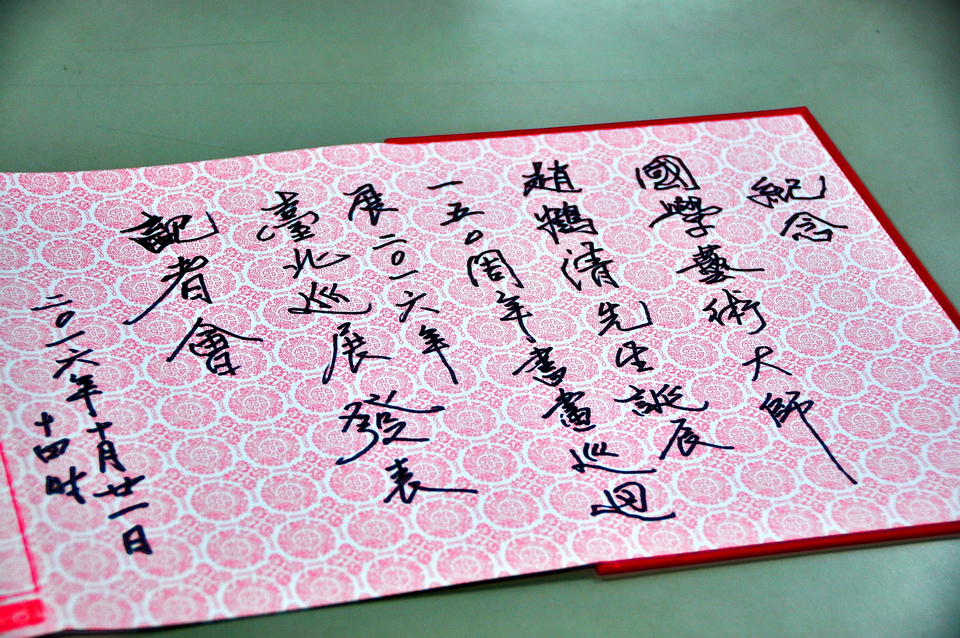 紀念
國學藝術大師
趙鶴清先生誕辰
一五〇周年書畫巡迴
展二〇一六年
臺北巡展發表
記者會
二〇一六年十月廿一日
十四時